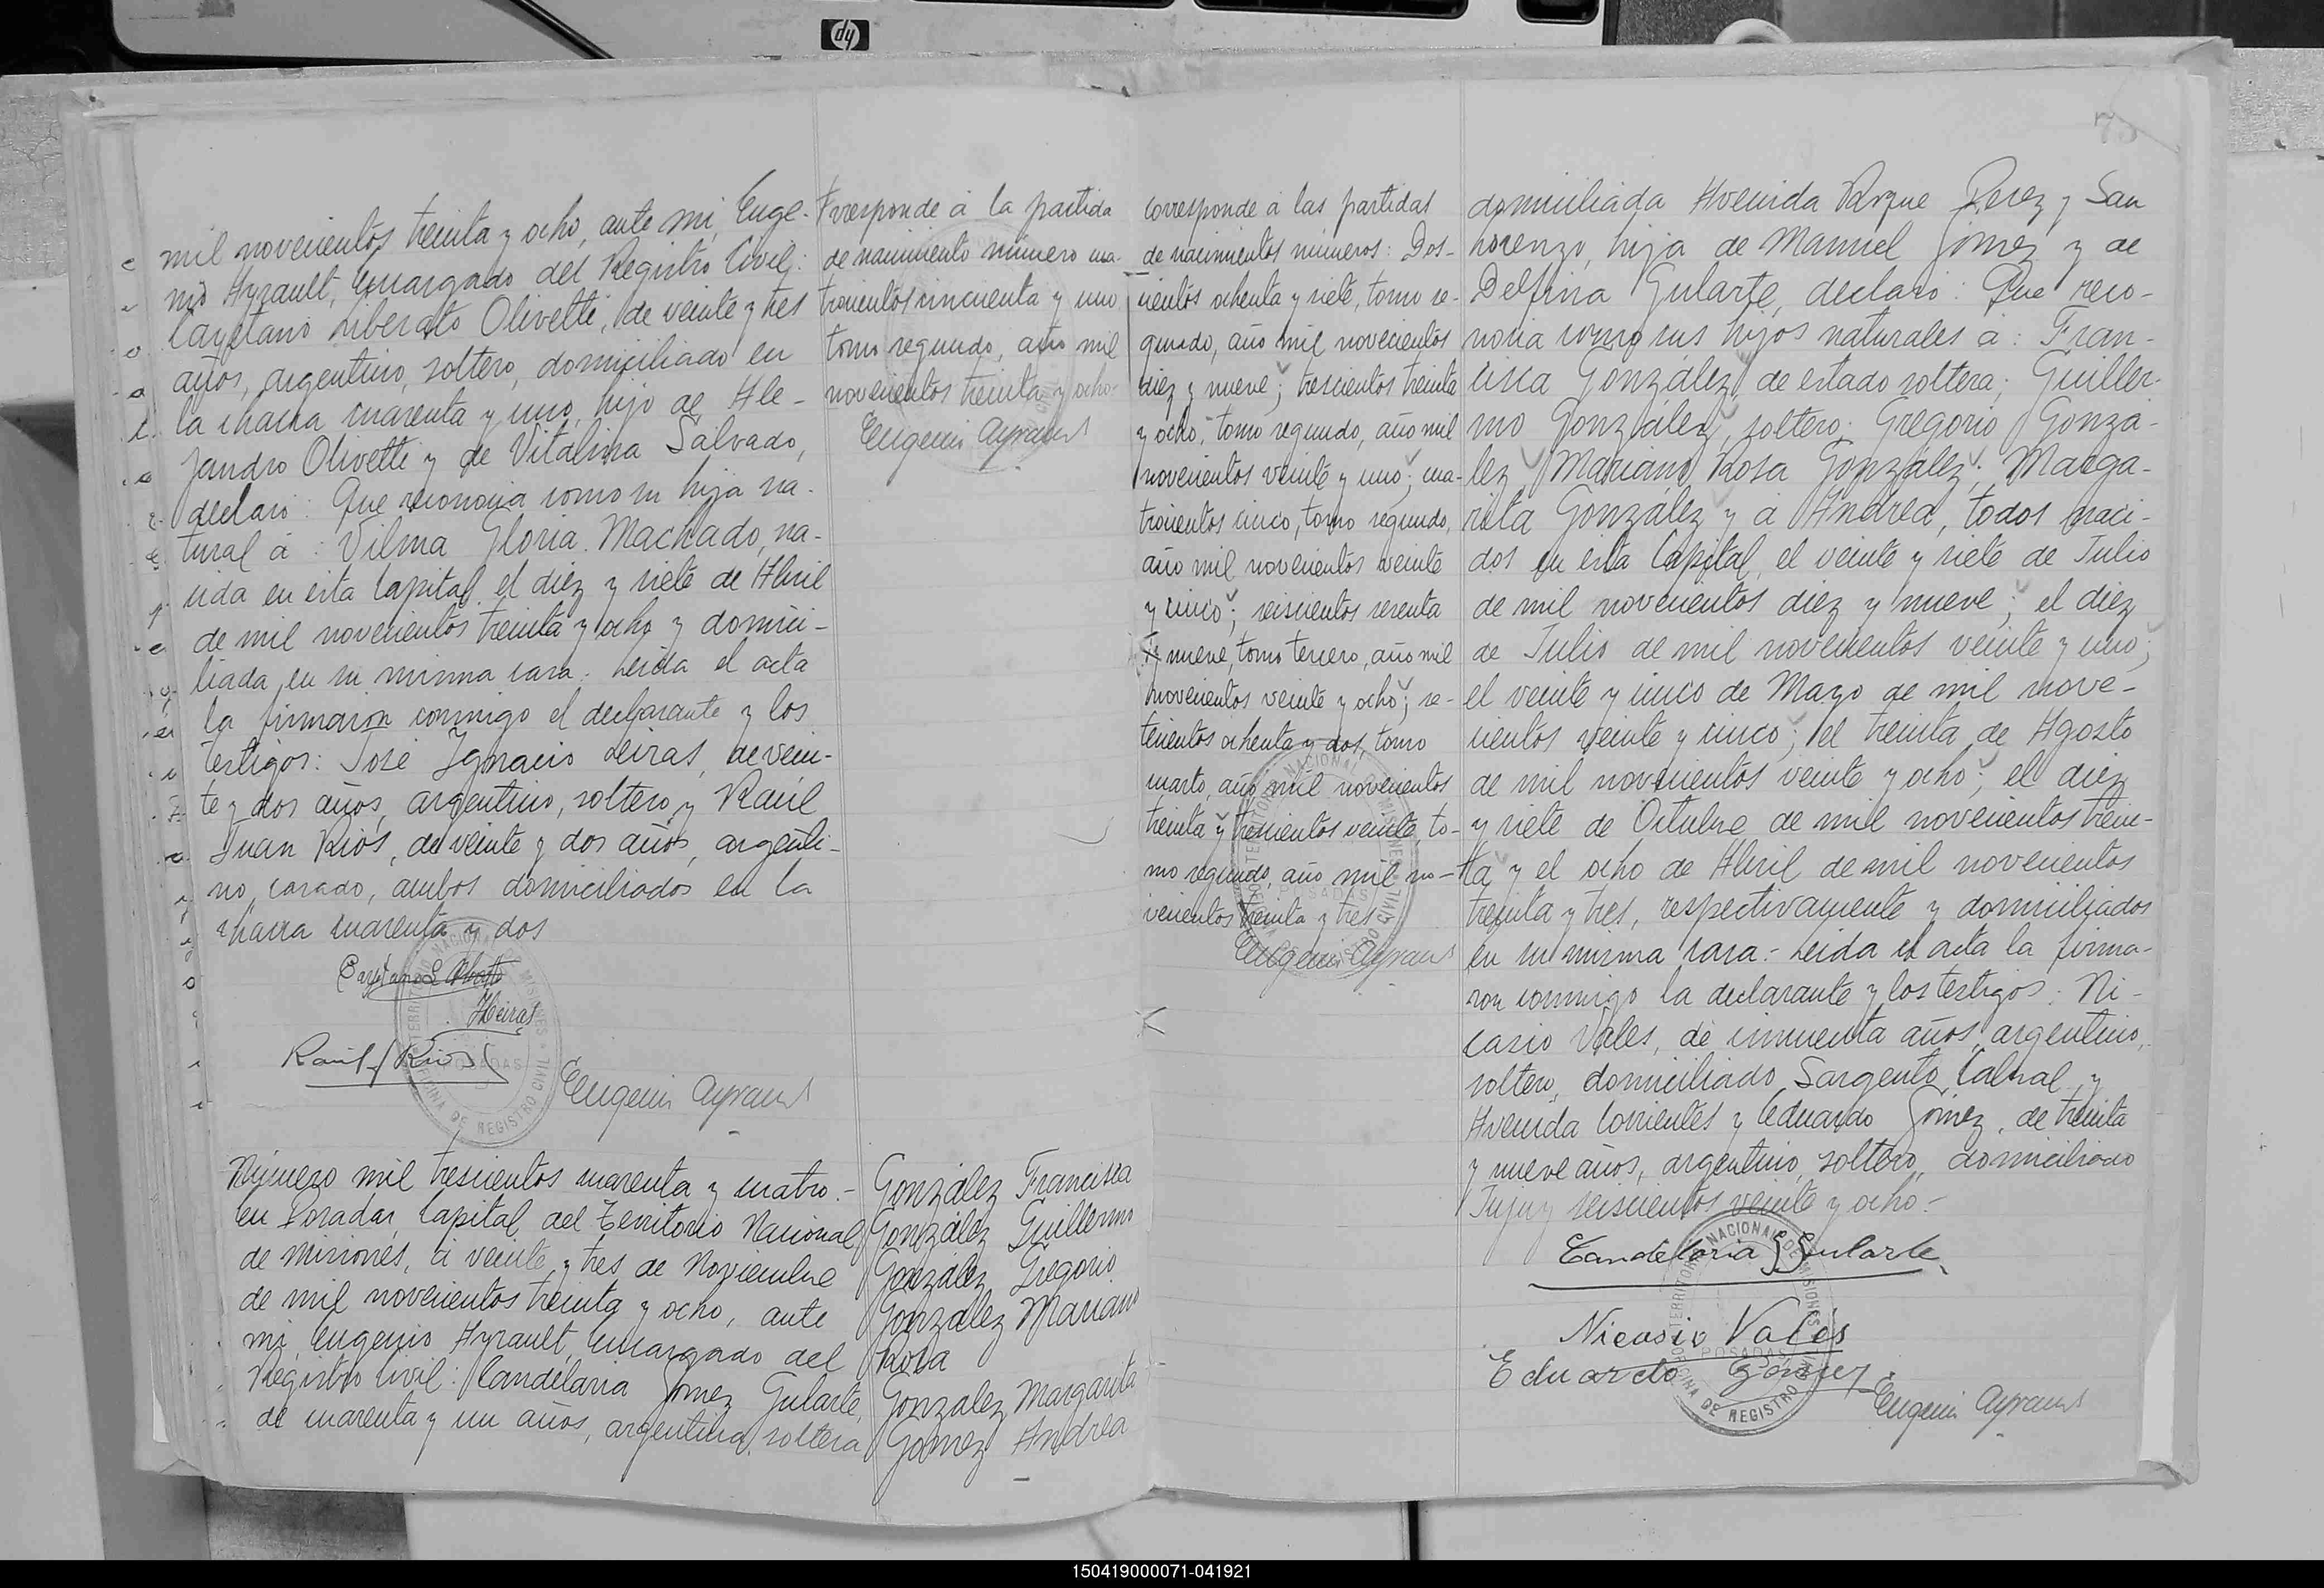 hp
mil novecientos treinta y ocho, ante mi, Euge-
nio Ayrault, Encargado del Registro Civil:
Cayetano Liberato Olivetti, de veinte y tres
años, argentino, soltero, domiciliado en
la chacra cuarenta y uno, hijo de Ale-
jandro Olivetti y de Vitalina Salvado,
declaró: Que reconocia como su hija na-
tural á: Vilma Gloria Machado, na-
cida en esta Capital el diez y siete de Abril
de mil novecientos treinta y ocho y domici-
liada en su misma casa. Leida el acta
la firmaron conmigo el declarante y los
testigos: José Ignacio Leiras, de vein-
te y dos años, argentino, soltero y Raúl
Juan Rios, de veinte y dos años, argenti-
no, casado, ambos domiciliados en la
chacra cuarenta y dos
JLeiras
Raul J Rios
Eugenio Ayrault
TERRITORIO NACIONAL DE MISIONES
POSADAS
OFICINA DE REGISTRO CIVIL
rresponde á la partida
de nacimiento número cua-
trocientos cincuenta y uno
tomo segundo, año mil
novecientos treinta y ocho-
Eugenio Ayrault
Número mil trescientos cuarenta y cuatro.-
En Posadas, Capital del Territorio Nacional
de Misiones, á veinte y tres de Noviembre
de mil novecientos treinta y ocho, ante
mi, Eugenio Ayrault, Encargado del
Registro Civil: Candelaria Gomez Gularte,
de cuarenta y un años, argentina, soltera
González Francisca
González Guillermo
González Gregorio
González Mariano
Rosa
González Margarita
Gomez Andrea
Corresponde á las partidas
de nacimientos números: Dos-
cientos ochenta y siete, tomo se-
gundo, año mil novecientos
diez y nueve; trescientos treinta
y ocho, tomo segundo, año mil
novecientos veinte y uno; cua-
trocientos cinco, tomo segundo,
año mil novecientos veinte
y cinco; seiscientos sesenta
y nueve, tomo tercero, año mil
novecientos veinte y ocho; se-
tecientos ochenta y dos, tomo
cuarto, año mil novecientos
treinta y trescientos veinte, to-
mo segundo, año mil no-
vecientos treinta y tres
Eugenio Ayrault
TERRITORIO NACIONAL DE MISIONES
POSADAS
OFICINA DE REGISTRO CIVIL
75
domiciliada Avenida Roque Perez y San
Lorenzo, hija de Manuel Gomez y de
Delfina Gularte, declaró: Que reco-
nocia como sus hijos naturales á: Fran-
cisca González, de estado soltera; Guiller-
mo González, soltero; Gregorio Gonzá-
lez, Mariano Rosa González; Marga-
rita González y á Andrea, todos naci-
dos en esta Capital, el veinte y siete de Julio
de mil novecientos diez y nueve; el diez
de Julio de mil novecientos veinte y uno;
el veinte y cinco de Mayo de mil nove-
cientos veinte y cinco; el treinta de Agosto
de mil novecientos veinte y ocho; el diez
y siete de Octubre de mil novecientos trein-
ta y el ocho de Abril de mil novecientos
treinta y tres, respectivamente y domiciliados
en su misma casa.- Leida el acta la firma-
ron conmigo la declarante y los testigos: Ni-
casio Vales, de cincuenta años, argentino,
soltero, domiciliado Sargento Cabral y
Avenida Corrientes y Eduardo Gómez, de treinta
y nueve años, argentino, soltero, domiciliado
Jujuy seiscientos veinte y ocho.-
Candelaria G Gularte
Nicasio Vales
Eduardo Gomez
Eugenio Ayrault
TERRITORIO NACIONAL DE MISIONES
POSADAS
OFICINA DE REGISTRO CIVIL
150419000071-041921